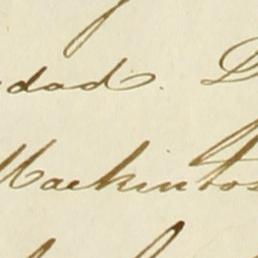 dad. D
Mackintos